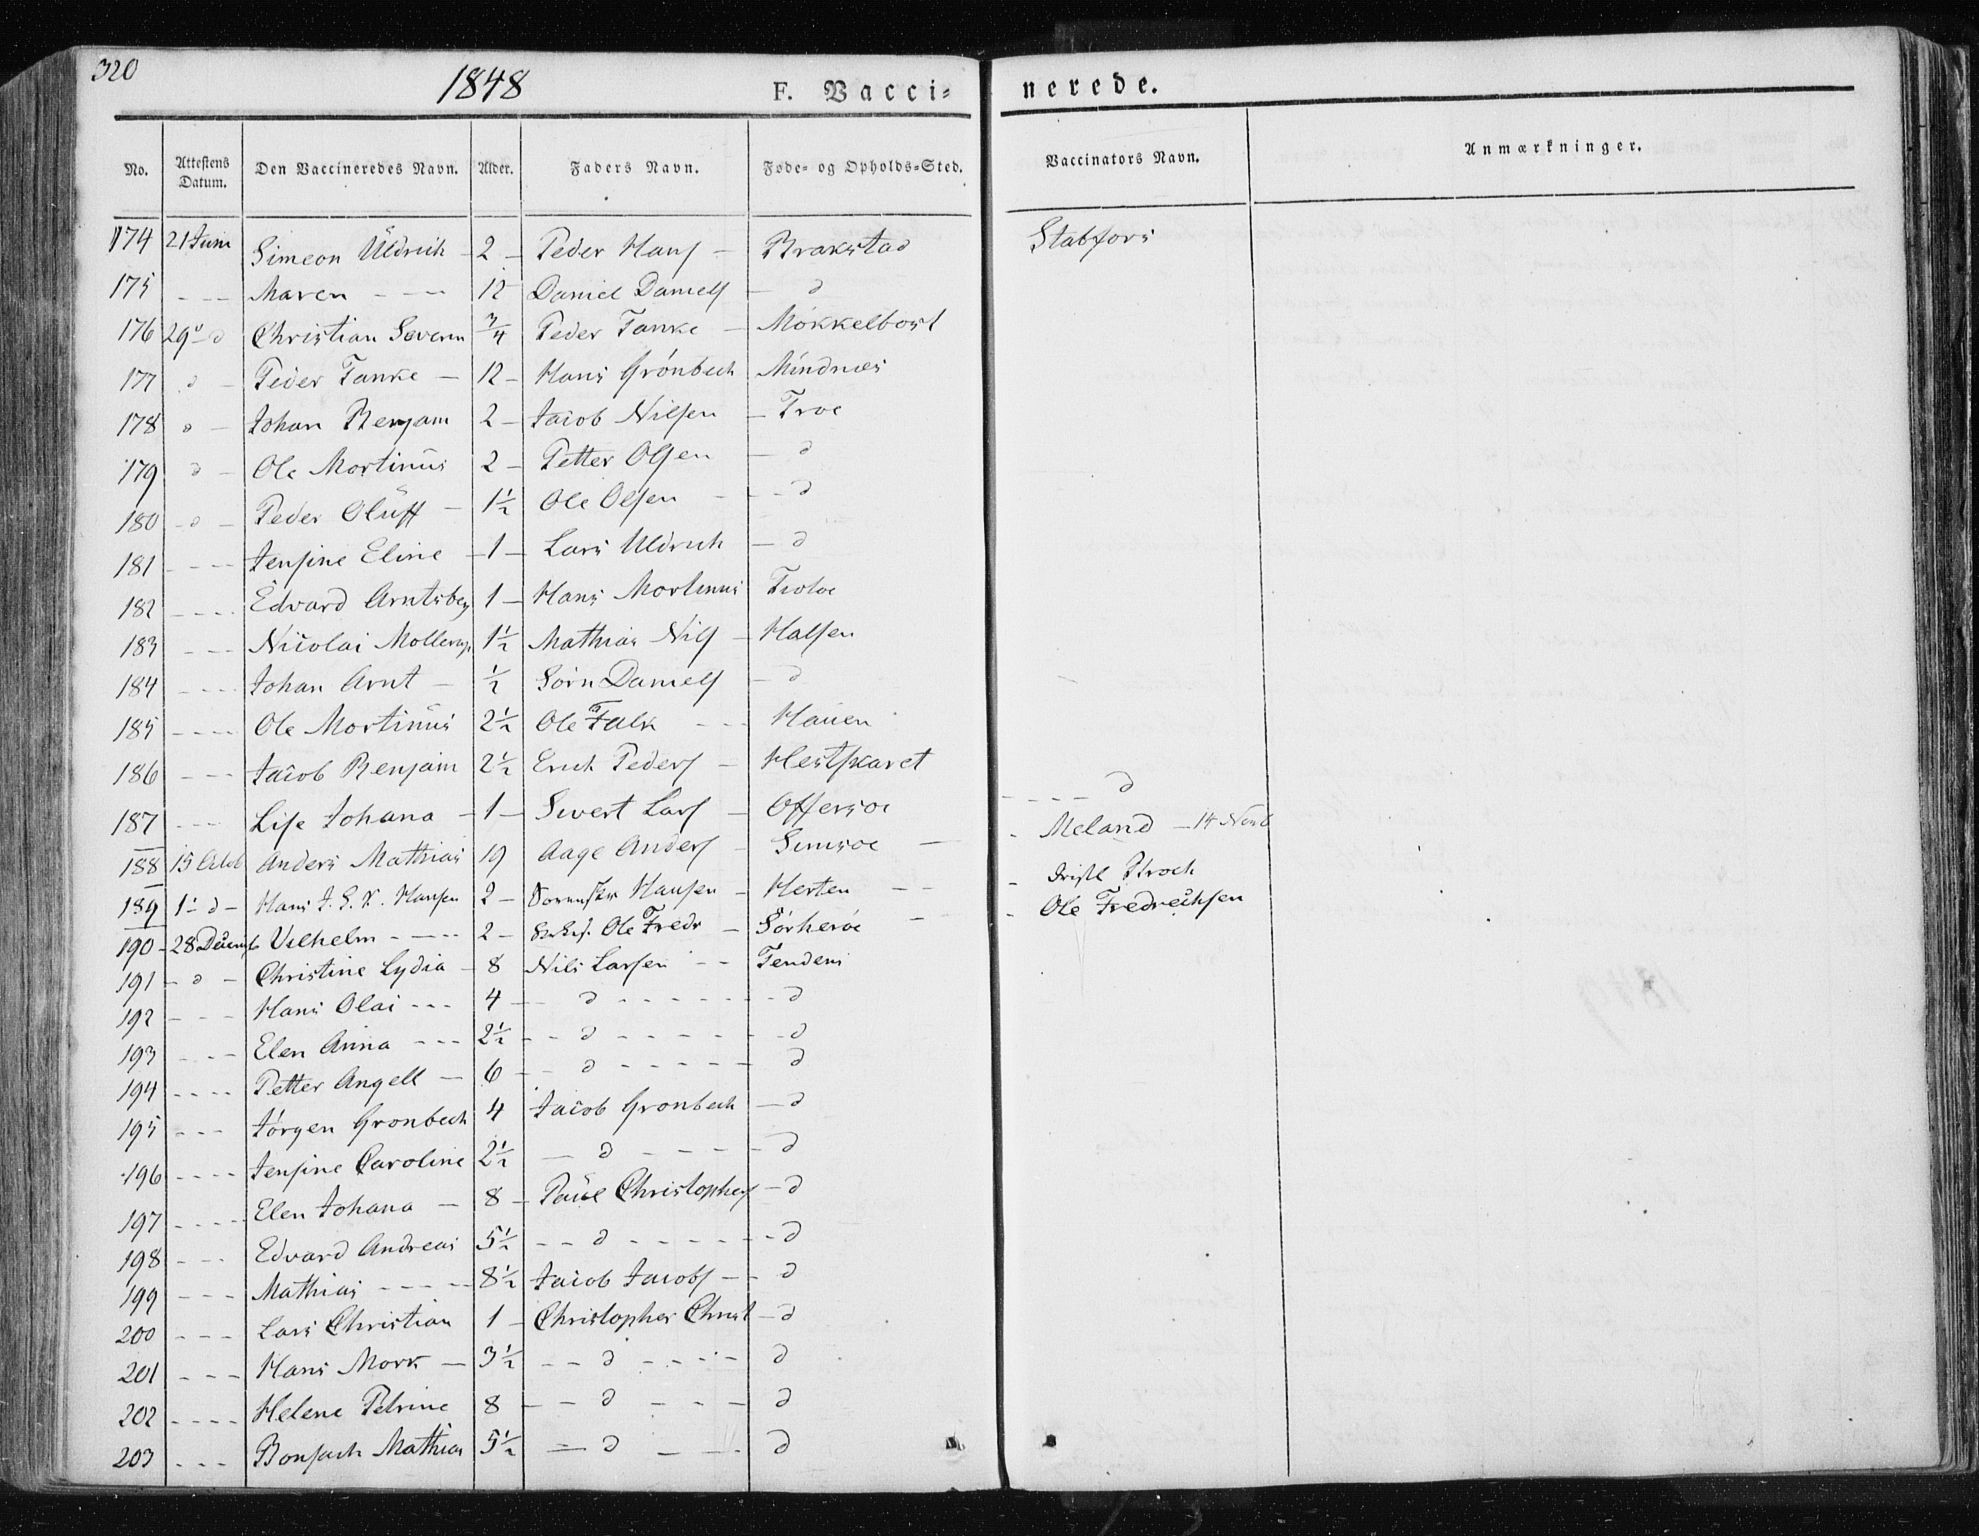 320
1848
F. Vacci= nerede.
No. Attestens Datum. Den Vaccineredes Navn. Alder. Faders Navn. Føde= og Opholds=Sted. Vaccinators Navn. Anmærkninger.
174 21 Juni Simeon Uldrich - 2 - Peder Hans - Brakstad Stabfors
175 - - - Maren - - - 12 Daniel Daniels - d
176 29 - d Christian Severin 3/4 Peder Tanke - Møkkelbost
177 d - Peder Tanke - 12 - Hans Grønbech Mindnæs
178 d - Johan Benjam 2 - Jacob Nilsen - Troe
179 d - Ole Mortinus 2 - Petter Olsen - d
180 - d - Peder Oluff - 1½ Ole Olsen - - d
181 - - - - Jensine Eline - 1 - Lars Uldrich - d
182 - - - - Edvard Arntsberg 1 - Hans Mortinus Troloe
183 - - - Nicolai Mollerup 1½ Mathias Nils - Halsen
184 - - - - Johan Arnt - ½ Sørn Daniels - d
185 - - - - Ole Mortinus 2½ Ole Falk - - - Hauen
186 - - - Jacob Benjam 2½ Erich Peders - Hestskaret
187 - - - Lise Johana - 1 - Sivert Lars - Offersoe - - - - d
188 15 Octob Anders Mathias 19 Aage Anders - Sumsoe - - Meland - 14 Novb
189 1 - d - Hans J. E. K. Hansen 2 - Hansen - Herten - - - Broch
190 - 28 Decemb Vilhelm - - - 2 - Ole Fredr - Sørherøe - - Ole Fredrichsen
191 - d - Christine Lydia - 8 Nils Larsen - - Tendens
192 - - - Hans Olai - - - 4 - - d - - - - - d
193 - - - - Elen Anna - - - 2½ - - d - - - - - d
194 - - - - Petter Angell - 6 - - d - - - - - d
195 - - - Jørgen Gronbech 4 Jacob Gronbech - d
196 - - - - Jensine Caroline 2½ - d - - - - d
197 - - - - Elen Johana - 8 - Paul Christophers - d
198 - - - Edvard Andreas 5½ - - d - - - - - d
199 - - - Mathias - - - - 8½ Jacob Jacobs - - d
200 - - - Lars Christian 1 - Christopher Christ - d
201 - - - Hans Mork - 3½ - - d - - - - d
202 - - - - Helene Petrine 8 - - d - - - d
203 - - - Bonsach Mathias 5½ - d - - - d